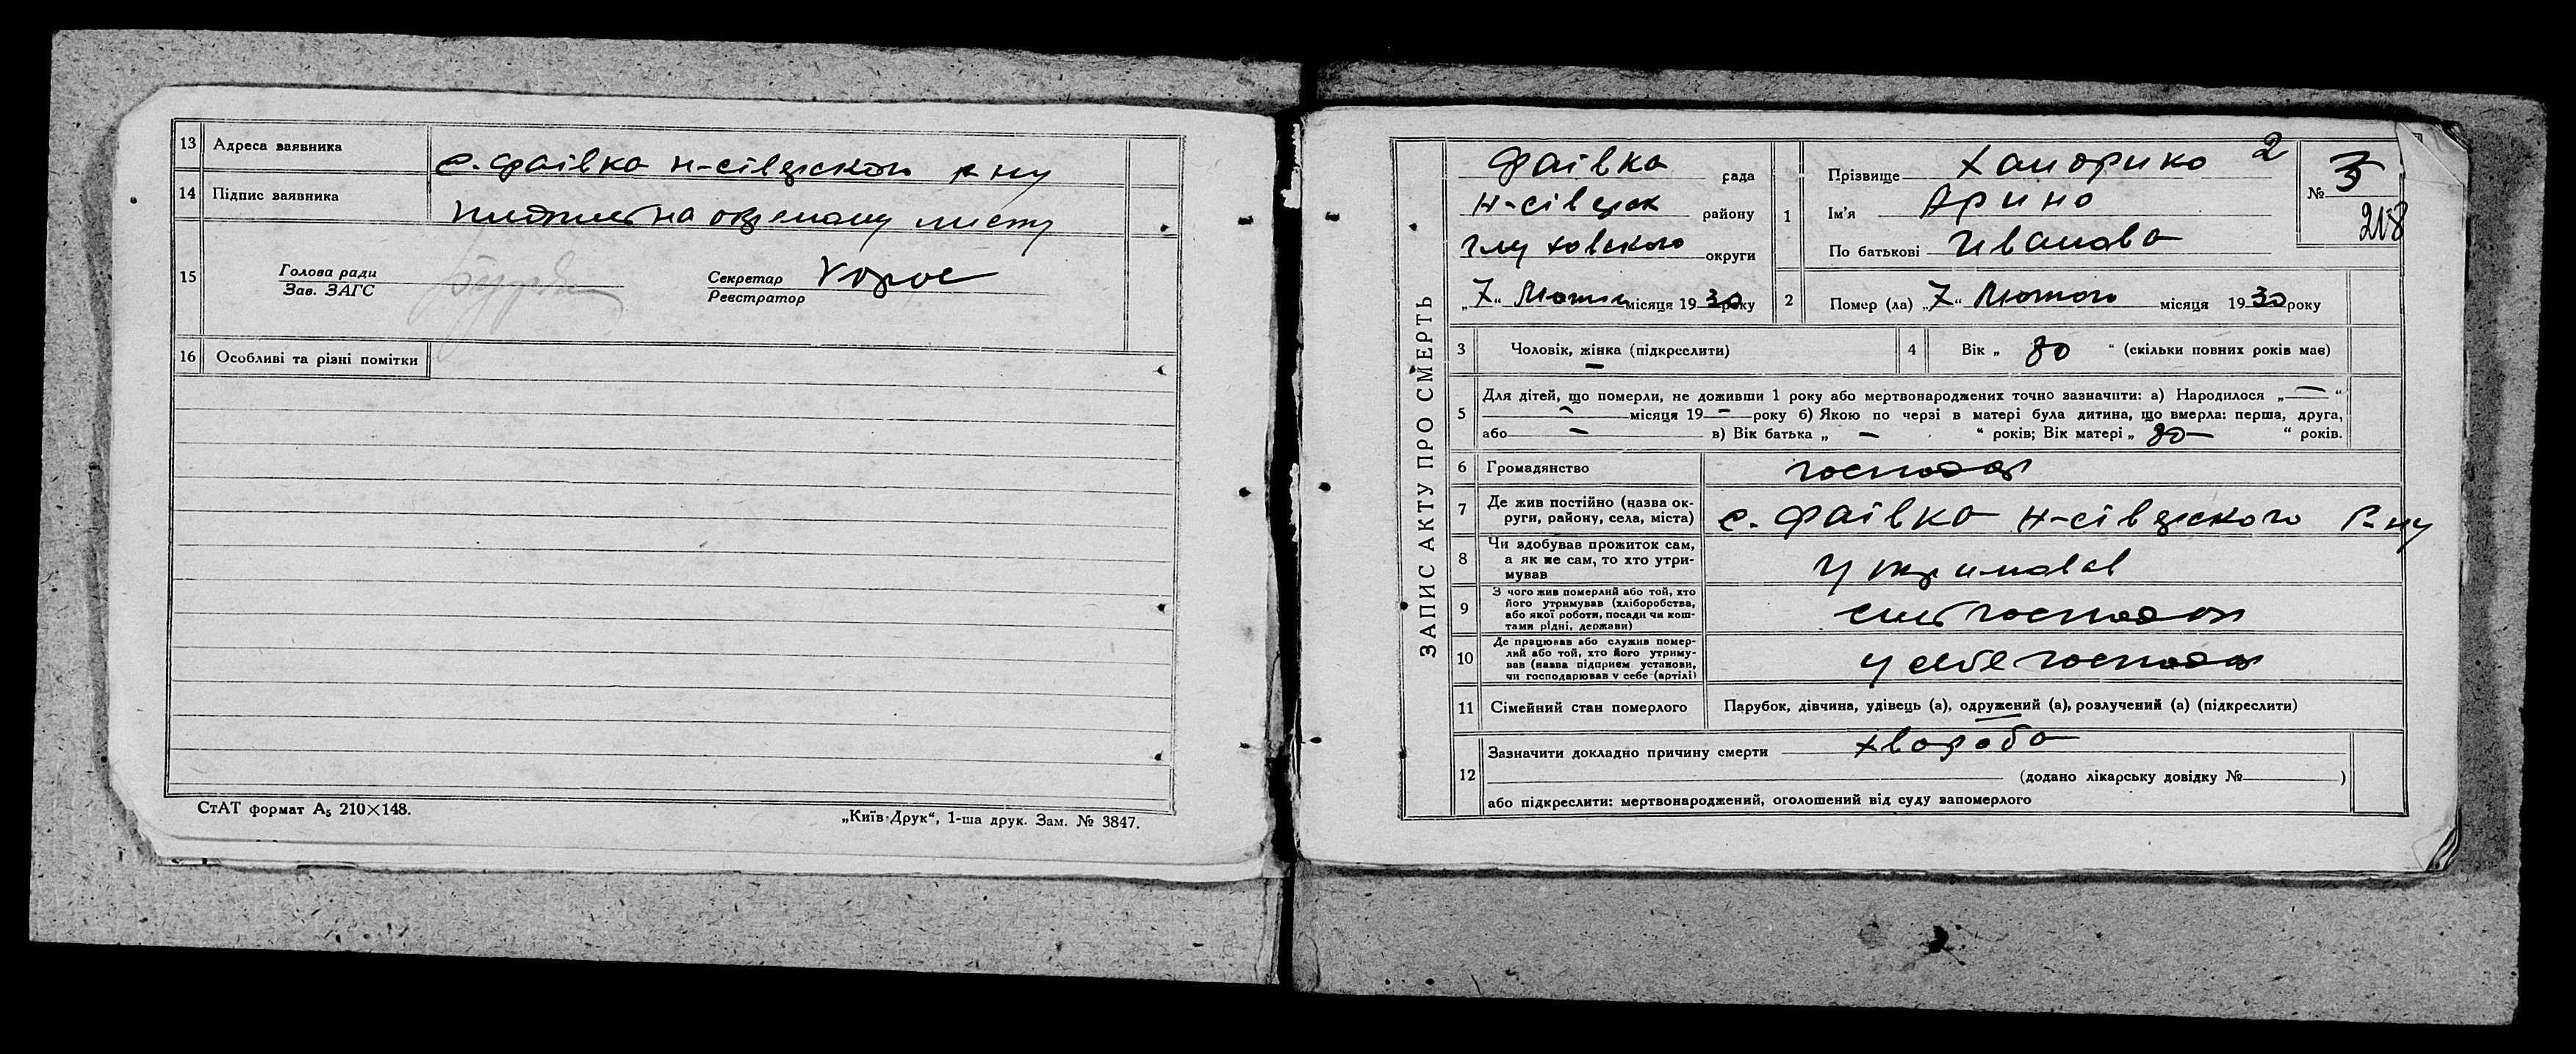 13 Адреса заявника
с. Фаівка н-сіверского р ну
14 Підпис заявника
на окремому листу
15 Голова ради
Зав. ЗАГС
Секретар
Реєстратор
16 Особливі та різні помітки
СтАТ формат А₅ 210×148.
„Київ-Друк“, 1-ша друк. Зам. № 3847.
ЗАПИС АКТУ ПРО СМЕРТЬ
Фаівка рада
н-сіверск району
Глуховского округи
„7“ місяця 1930 року
1 Прізвище 2
Ім'я Арина
По батькові Иванова
№ 3
218
2 Помер (ла) „7“ Лютого місяця 1930 року
3 Чоловік, жінка (підкреслити)
4 Вік „ 80 “ (скільки повних років мав)
5 Для дітей, що померли, не доживши 1 року або мертвонароджених точно зазначити: а) Народилося „ — “
— місяця 19 — року б) Якою по черзі в матері була дитина, що вмерла: перша, друга,
або — в) Вік батька „ — “ років; Вік матері „ 80 — “ років.
6 Громадянство господар
7 Де жив постійно (назва округи, району, села, міста)
с. Фаівка н-сіверского р-ну
8 Чи здобував прожиток сам,
а як не сам, то хто утримував
утримовав
9 З чого жив померлий або той, хто
його утримував (хліборобства,
або якої роботи, посади чи коштами рідні, держави)
син господар
10 Де працював або служив померлий або той, хто його утримував (назва підприєм установи,
чи господарював у себе (артілі)
у себе господар
11 Сімейний стан померлого
Парубок, дівчина, удівець (а), одружений (а), розлучений (а) (підкреслити)
12 Зазначити докладно причину смерти хвороба
(додано лікарську довідку № )
або підкреслити: мертвонароджений, оголошений від суду запомерлого